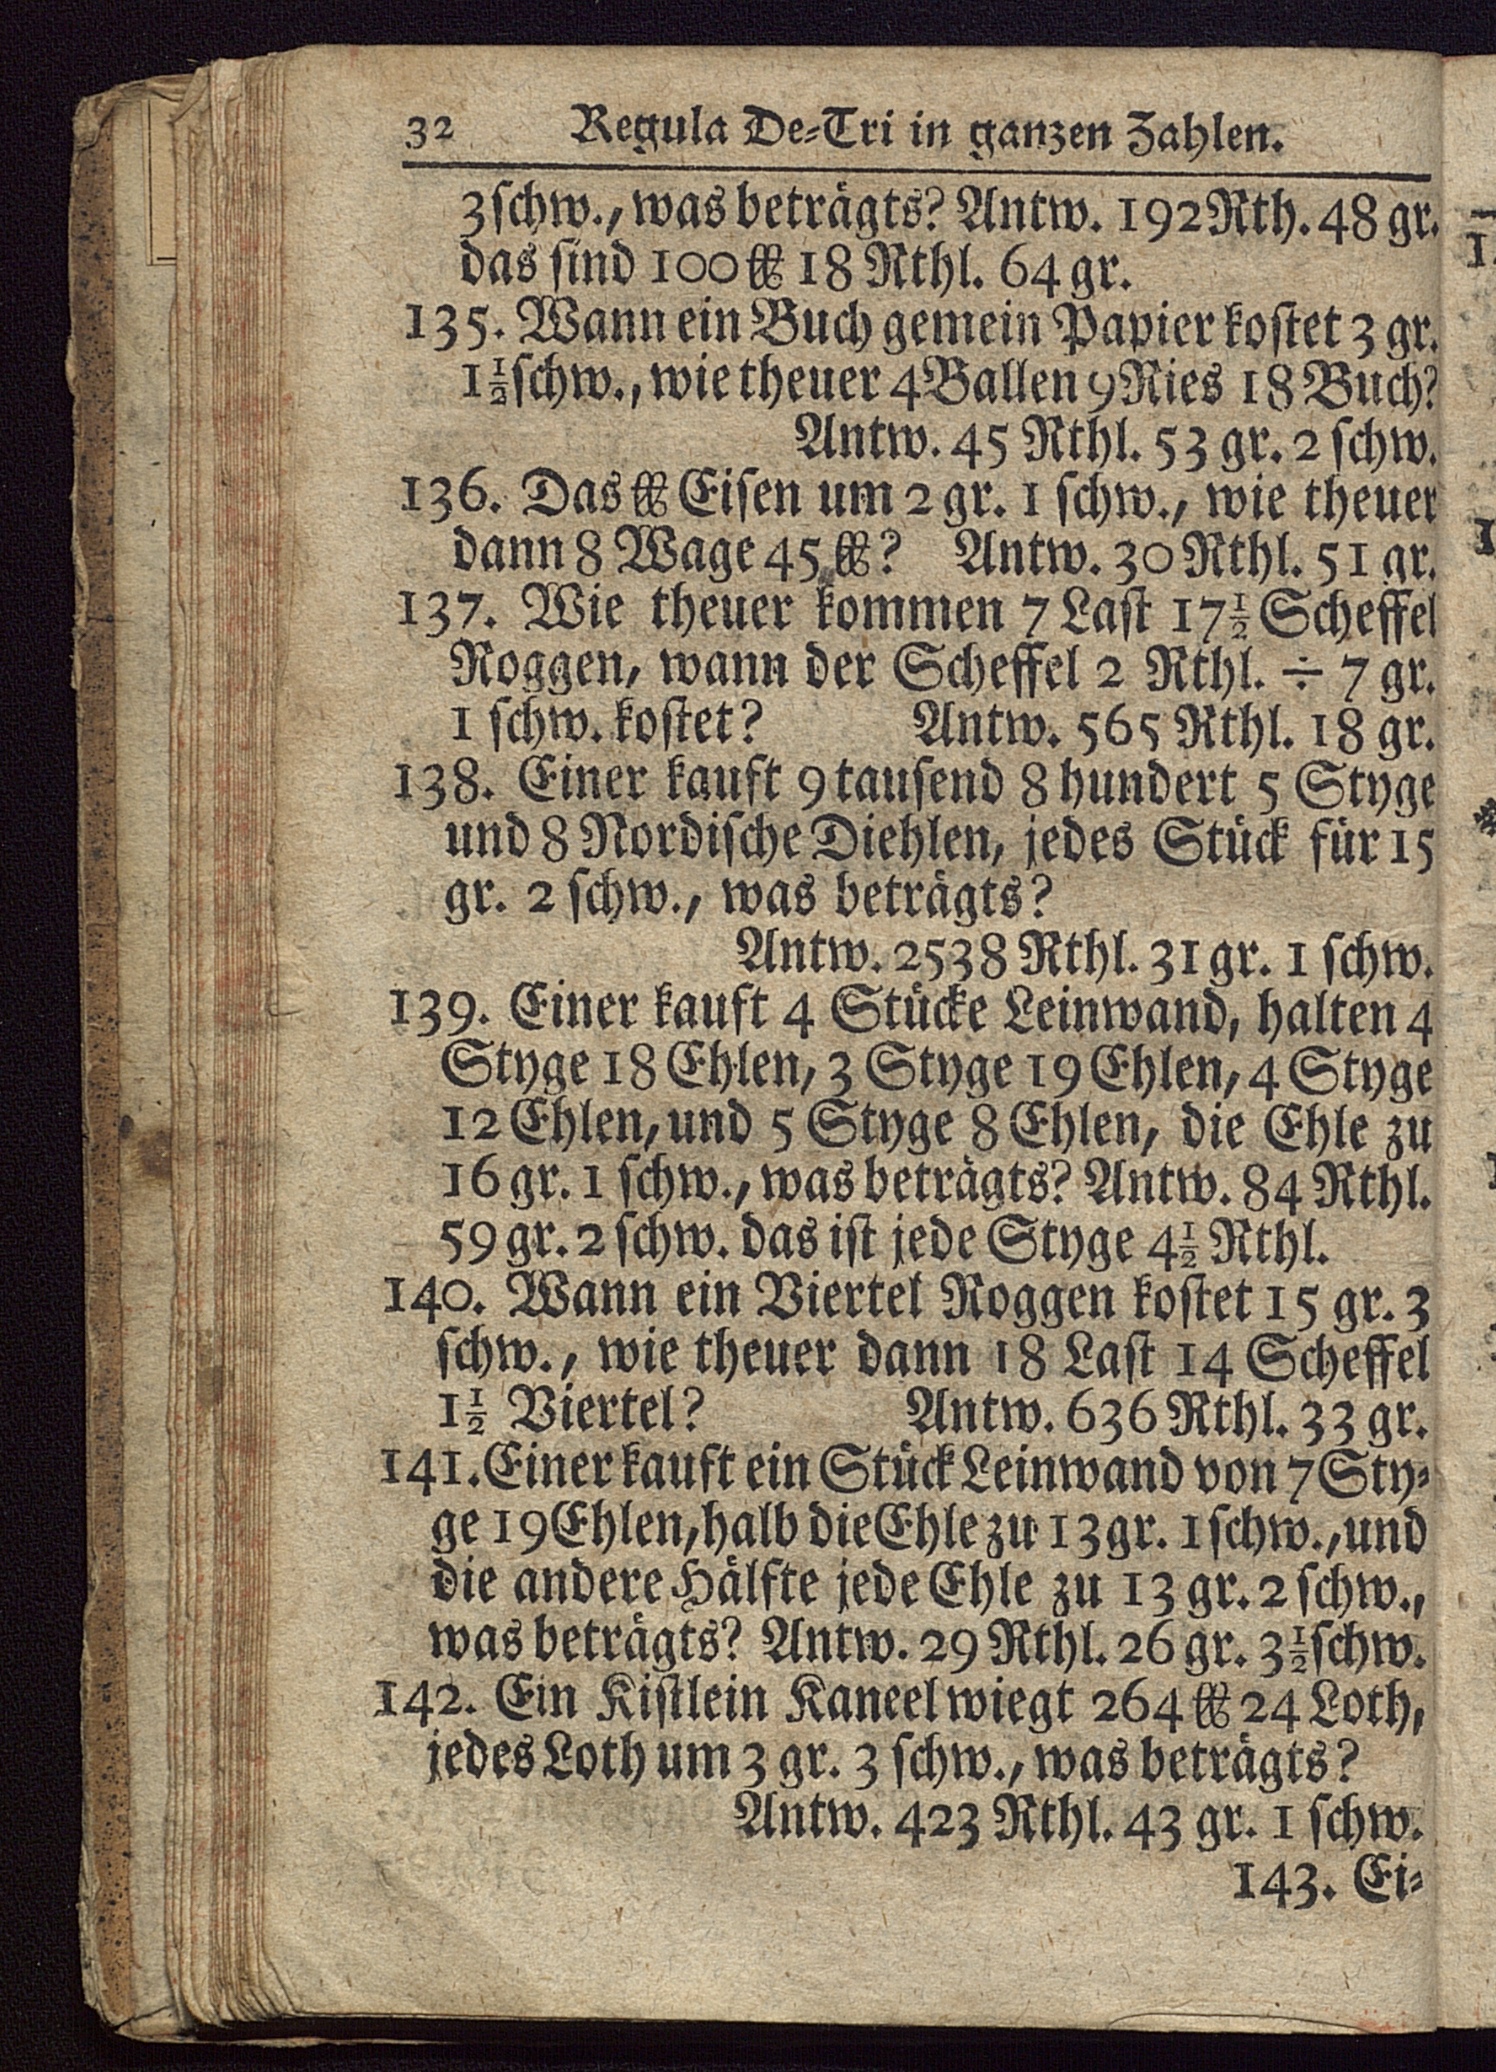 32 Regula De-Tri in ganzen Zahlen.
3 schw., was beträgts? Antw. 192 Rth. 48 gr.
das sind 100 ℔ 18 Rthl. 64 gr.
135. Wann ein Buch gemein Papier kostet 3 gr.
1½ schw., wie theuer 4 Ballen 9 Ries 18 Buch?
Antw. 45 Rthl. 53 gr. 2 schw.
136. Das ℔ Eisen um 2 gr. 1 schw., wie theuer
dann 8 Wage 45 ℔? Antw. 30 Rthl. 51 gr.
137. Wie theuer kommen 7 Last 17½ Scheffel
Roggen, wann der Scheffel 2 Rthl. ÷ 7 gr.
1 schw. kostet? Antw. 565 Rthl. 18 gr.
138. Einer kauft 9 tausend 8 hundert 5 Styge
und 8 Nordische Diehlen, jedes Stück für 15
gr. 2 schw., was beträgts?
Antw. 2538 Rthl. 31 gr. 1 schw.
139. Einer kauft 4 Stücke Leinwand, halten 4
Styge 18 Ehlen, 3 Styge 19 Ehlen, 4 Styge
12 Ehlen, und 5 Styge 8 Ehlen, die Ehle zu
16 gr. 1 schw., was beträgts? Antw. 84 Rthl.
59 gr. 2 schw. das ist jede Styge 4½ Rthl.
140. Wann ein Viertel Roggen kostet 15 gr. 3
schw., wie theuer dann 18 Last 14 Scheffel
1½ Viertel? Antw. 636 Rthl. 33 gr.
141. Einer kauft ein Stück Leinwand von 7 Sty-
ge 19 Ehlen, halb die Ehle zu 13 gr. 1 schw., und
die andere Hälfte jede Ehle zu 13 gr. 2 schw.,
was beträgts? Antw. 29 Rthl. 26 gr. 3½ schw.
142. Ein Kistlein Kaneel wiegt 264 ℔ 24 Loth,
jedes Loth um 3 gr. 3 schw., was beträgts?
Antw. 423 Rthl. 43 gr. 1 schw.
143. Ei-